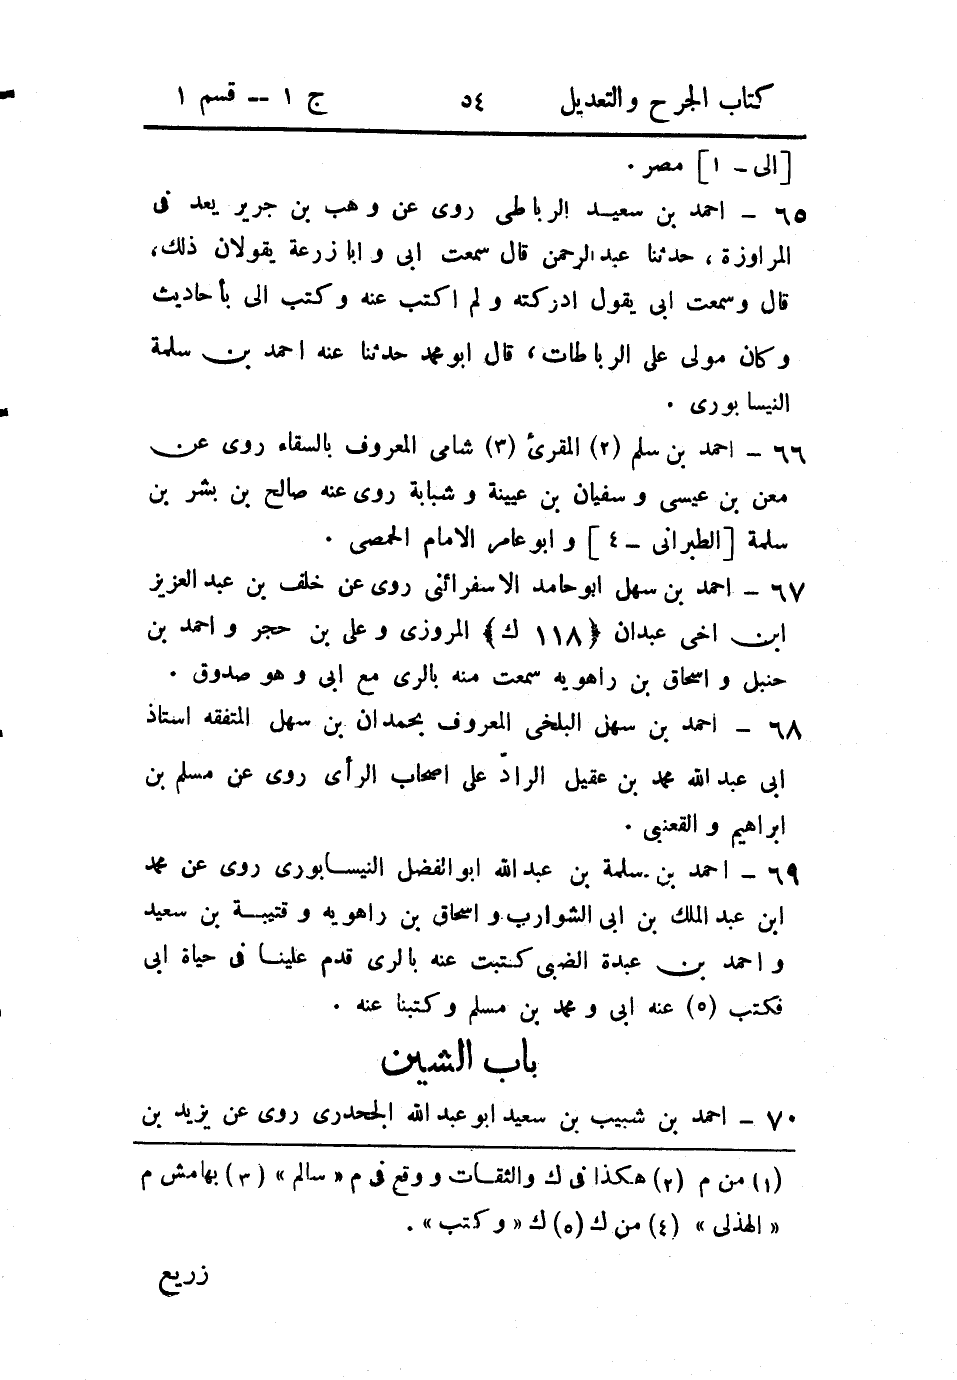 كتاب الجرح والتعديل ٥٤ ج ١ -- قسم ١
[الى - ١] مصر .
٦٥ - احمد بن سعيد الرباطى روى عن وهب بن جرير يعد فى
المراوزة ، حدثنا عبد الرحمن قال سمعت ابى و ابا زرعة يقولان ذلك،
قال وسمعت ابى يقول ادركته و لم اكتب عنه و كتب الى بأحاديث
وكان مولى على الرباطات، قال ابو محمد حدثنا عنه احمد بن سلمة
النيسابورى .
٦٦ - احمد بن سلم (٢) المقرئ (٣) شامى المعروف بالسقاء روى عن
معن بن عيسى و سفيان بن عيينة و شبابة روى عنه صالح بن بشر بن
سلمة [الطبرانى - ٤] و ابو عامر الامام الحمصى .
٦٧ - احمد بن سهل ابو حامد الاسفرائنى روى عن خلف بن عبد العزيز
ابن اخى عبدان ﴿١١٨ ك﴾ المروزى و على بن حجر و احمد بن
حنبل و اسحاق بن راهويه سمعت منه بالرى مع ابى و هو صدوق .
٦٨ - احمد بن سهل البلخى المعروف بحمدان بن سهل المتفقه استاذ
ابى عبد الله محمد بن عقيل الرادّ على اصحاب الرأى روى عن مسلم بن
ابراهيم و القعنبى .
٦٩ - احمد بن سلمة بن عبد الله ابو الفضل النيسابورى روى عن محمد
ابن عبد الملك بن ابى الشوارب و اسحاق بن راهويه و قتيبة بن سعيد
و احمد بن عبدة الضبى كتبت عنه بالرى قدم علينا فى حياة ابى
فكتب (٥) عنه ابى و محمد بن مسلم و كتبنا عنه .
باب الشين
٧٠ - احمد بن شبيب بن سعيد ابو عبد الله الجحدرى روى عن يزيد بن
(١) من م (٢) هكذا فى ك والثقات و وقع فى م « سالم » (٣) بهامش م
« الهذلى » (٤) من ك (٥) ك « و كتب » .
زريع